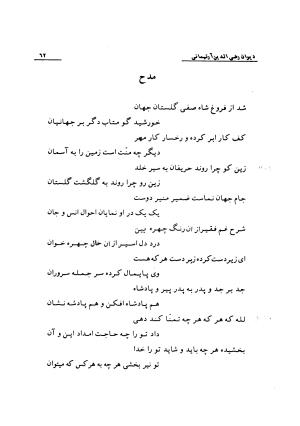 دیوان رضی الدین آرتیمانی
۶۲
مدح
شد از فروغ شاه صفی گلستان جهان
خورشید گو متاب دگر بر جهانیان
کف کار ابر کرده و رخسار کار مهر
دیگر چه منّت است زمین را به آسمان
زین کو چرا روند حریفان به سیر خلد
زین رو چرا روند به گلگشت گلستان
جام جهان نماست ضمیر منیر دوست
یک یک در او نمایان احوال انس و جان
شرح غم فقیر از آن رنگ چهره بین
درد دل اسیر از آن خال چهره خوان
ای زبردست کرده زیردست هر که هست
وی پایمال کرده سر جمله سروران
جد بر جد و پدر به پدر پیر و پادشاه
هم پادشاه افکن و هم پادشه نشان
لله که هر که هر چه تمنّا کند دهی
داد تو را چه حاجت امداد این و آن
بخشیده هر چه باید و شاید تو را خدا
تو نیز بخشی هر چه به هر کس که میتوان